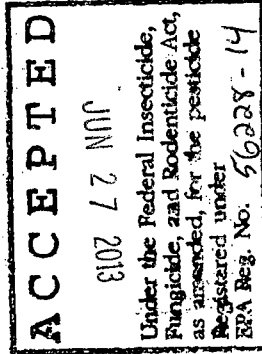 ACCEPTED
JUN 27 2013
Under the Federal Insecticide,
Fungicide, and Rodenticide Act,
as amended, for the pesticide
Registered under
EPA Reg. No: 56228-14